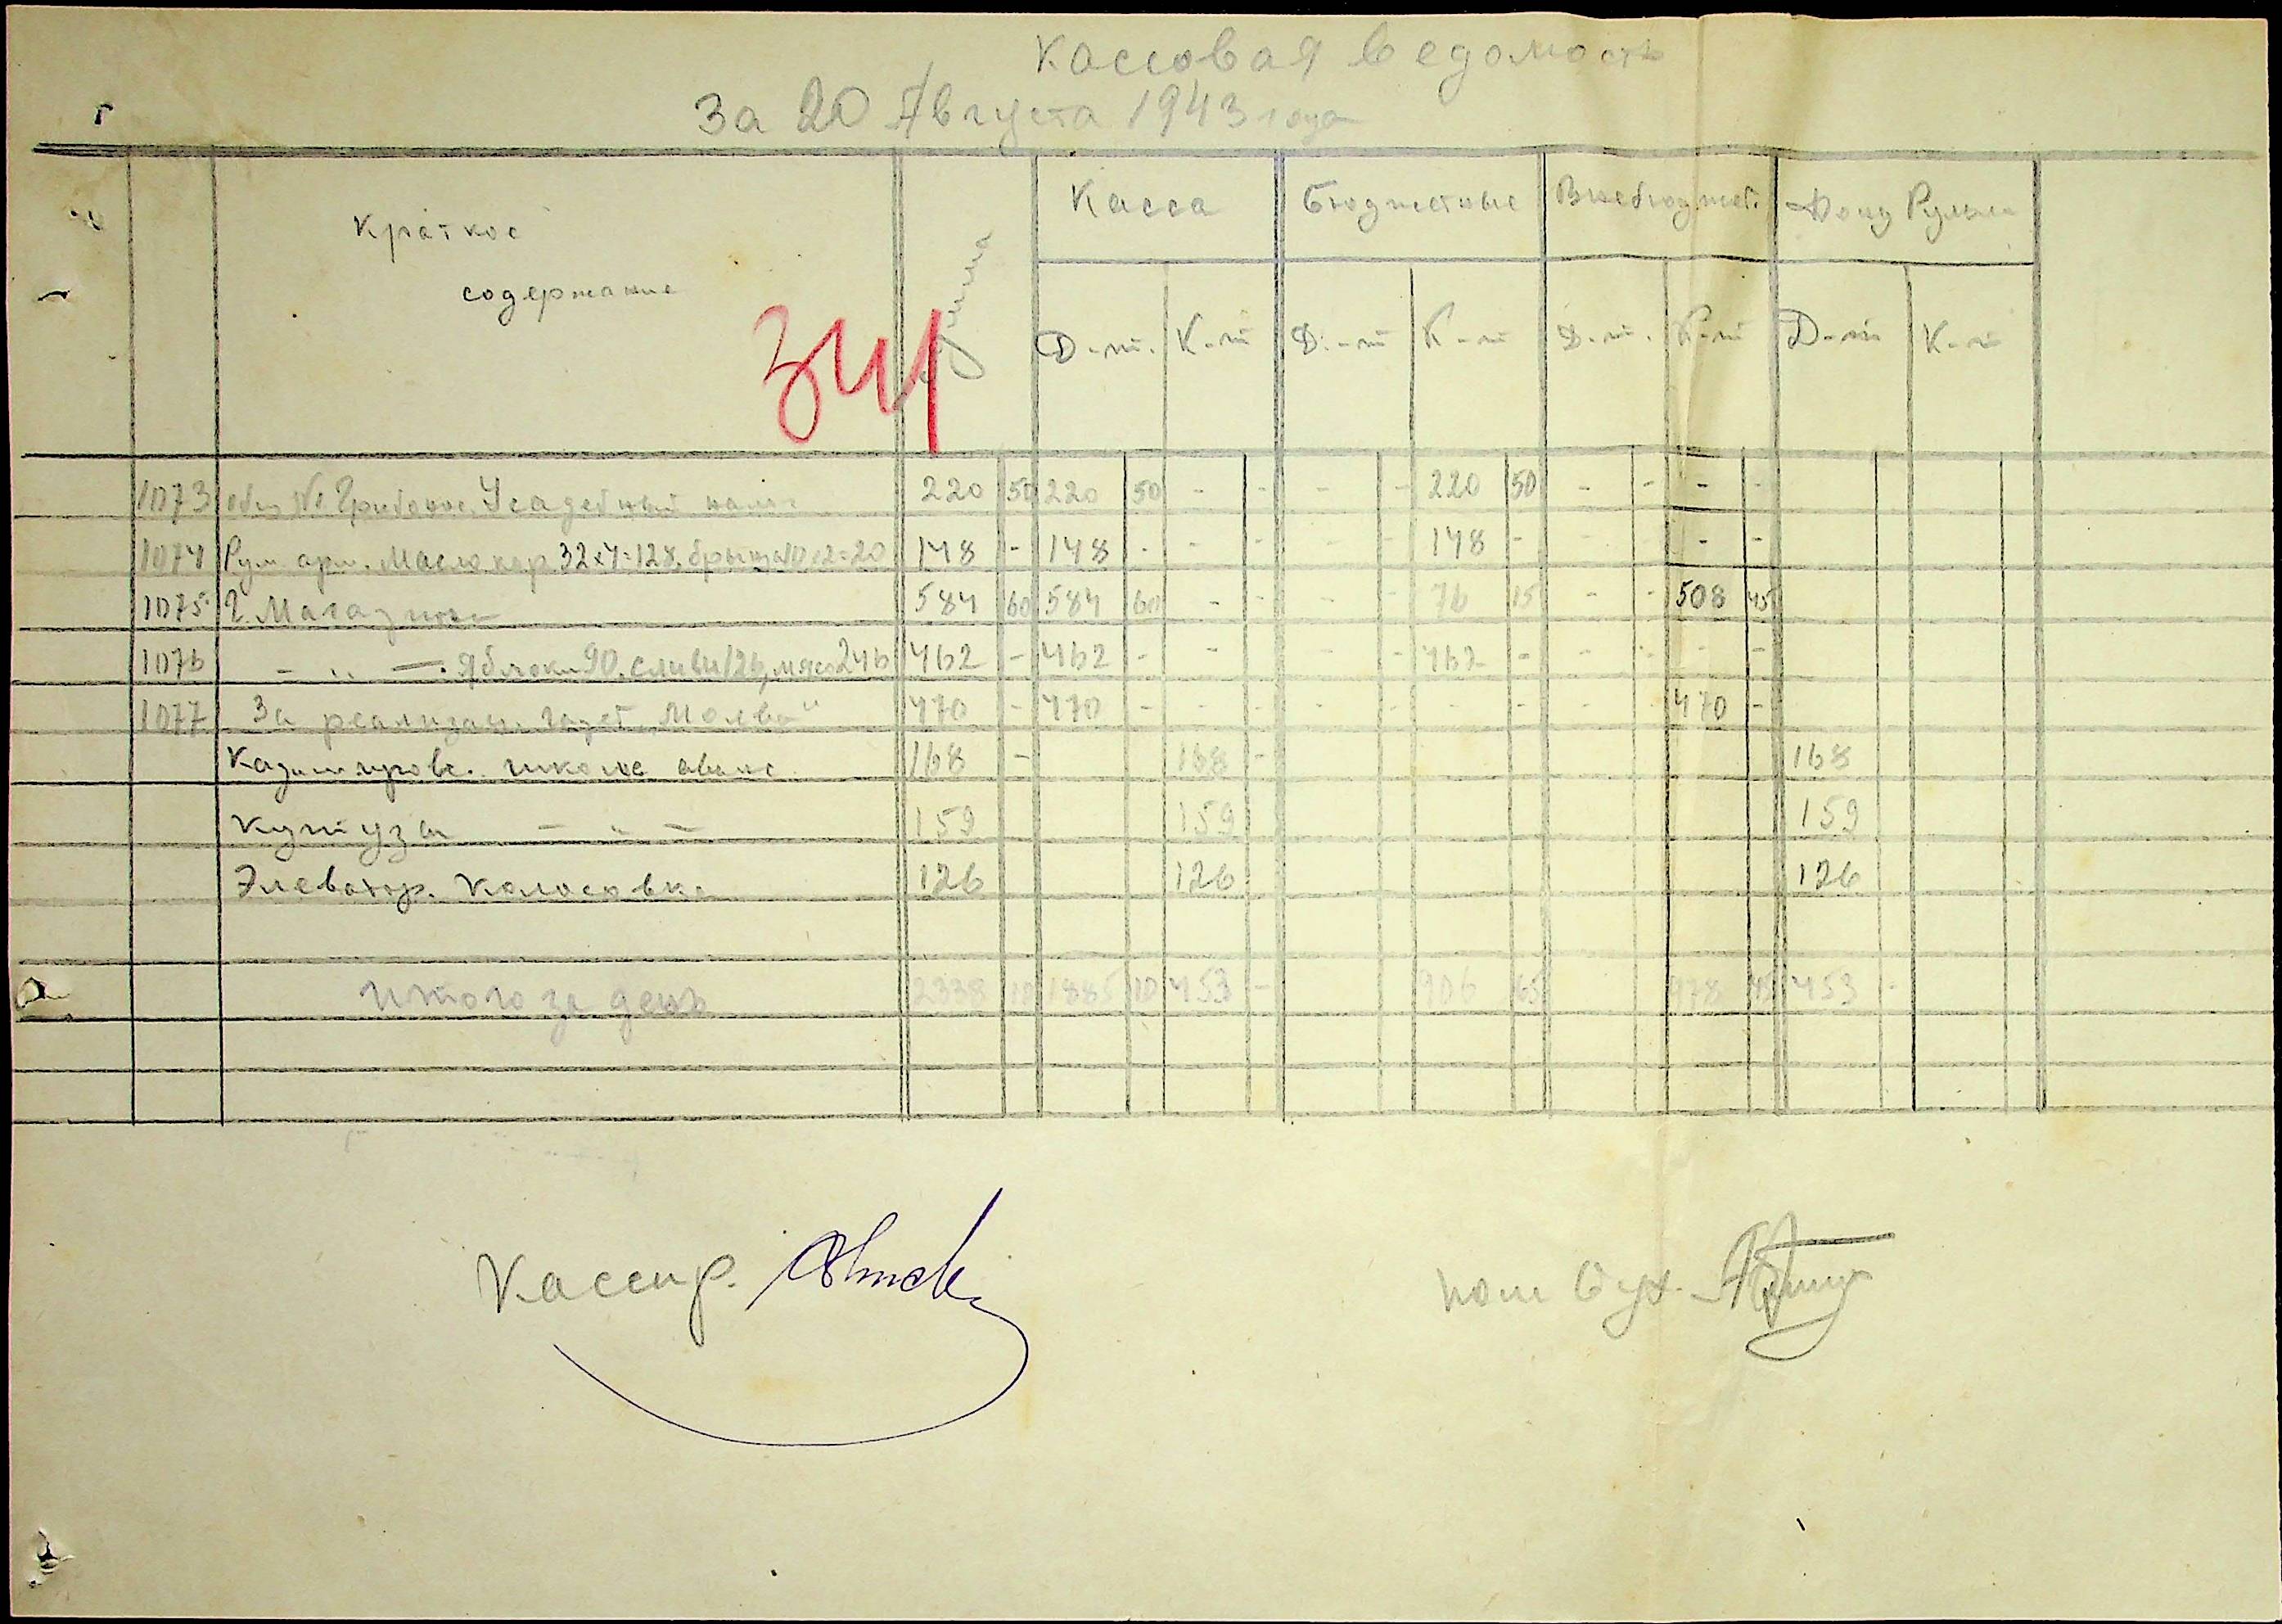 Кассовая ведомость
За 20 Августа 1943 года
Краткое содержание
сумма
Касса
Бюджетные
Внебюджет.
Фонд Румын
341
Д-т. К-т Д.-т К-т Д-т. К-т Д-т К-т
1073 Усадебный налог 220 50 220 50 - - - - 220 50 - - - -
1074 Рум арм. Масло кор 32x4=128, брынза 10x2=20 148 - 148 - - - - - 148 - - - - -
1075 Г. Магазин 584 60 584 60 - - - - 76 15 - - 508 45
1076 - " - . Яблоки 90. сливи 126, мясо 246 462 - 462 - - - - 462 - - - - -
1077 За реализац. газет. „Молва" 470 - 470 - - - - - - - - - 470 -
школе аванс 168 - 168 - 168
159 159 159
Элеватор. Колосовка 126 126 126
Итого за день 2338 10 1885 10 453 - 906 65 978 45 453 -
Кассир.
пом бух.